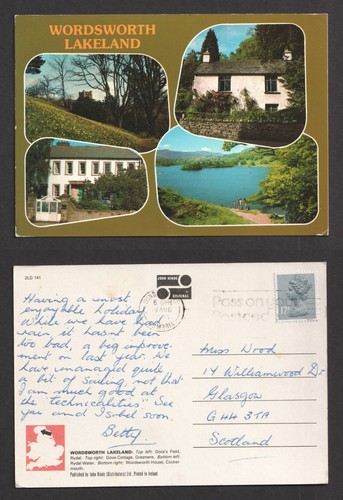 WORDSWORTH
LAKELAND
2LD 141
Having a most
enjoyable holiday.
While we have had
rain it hasn't been
too bad, a big improve-
ment on last year. We
have managed quite
a bit of Sailing, not that
I am much good at
the "technicalities" See
you and Isobel soon.
Betty.
WORDSWORTH LAKELAND: Top left: Dora's Field,
Rydal. Top right: Dove Cottage, Grasmere. Bottom left:
Rydal Water. Bottom right: Wordsworth House, Cocker-
mouth.
Published by John Hinde (Distributors) Ltd., Printed in Ireland.
Pass on your
Miss Wood
14 Williamwood Dr
Glasgow
G44 3TA
Scotland